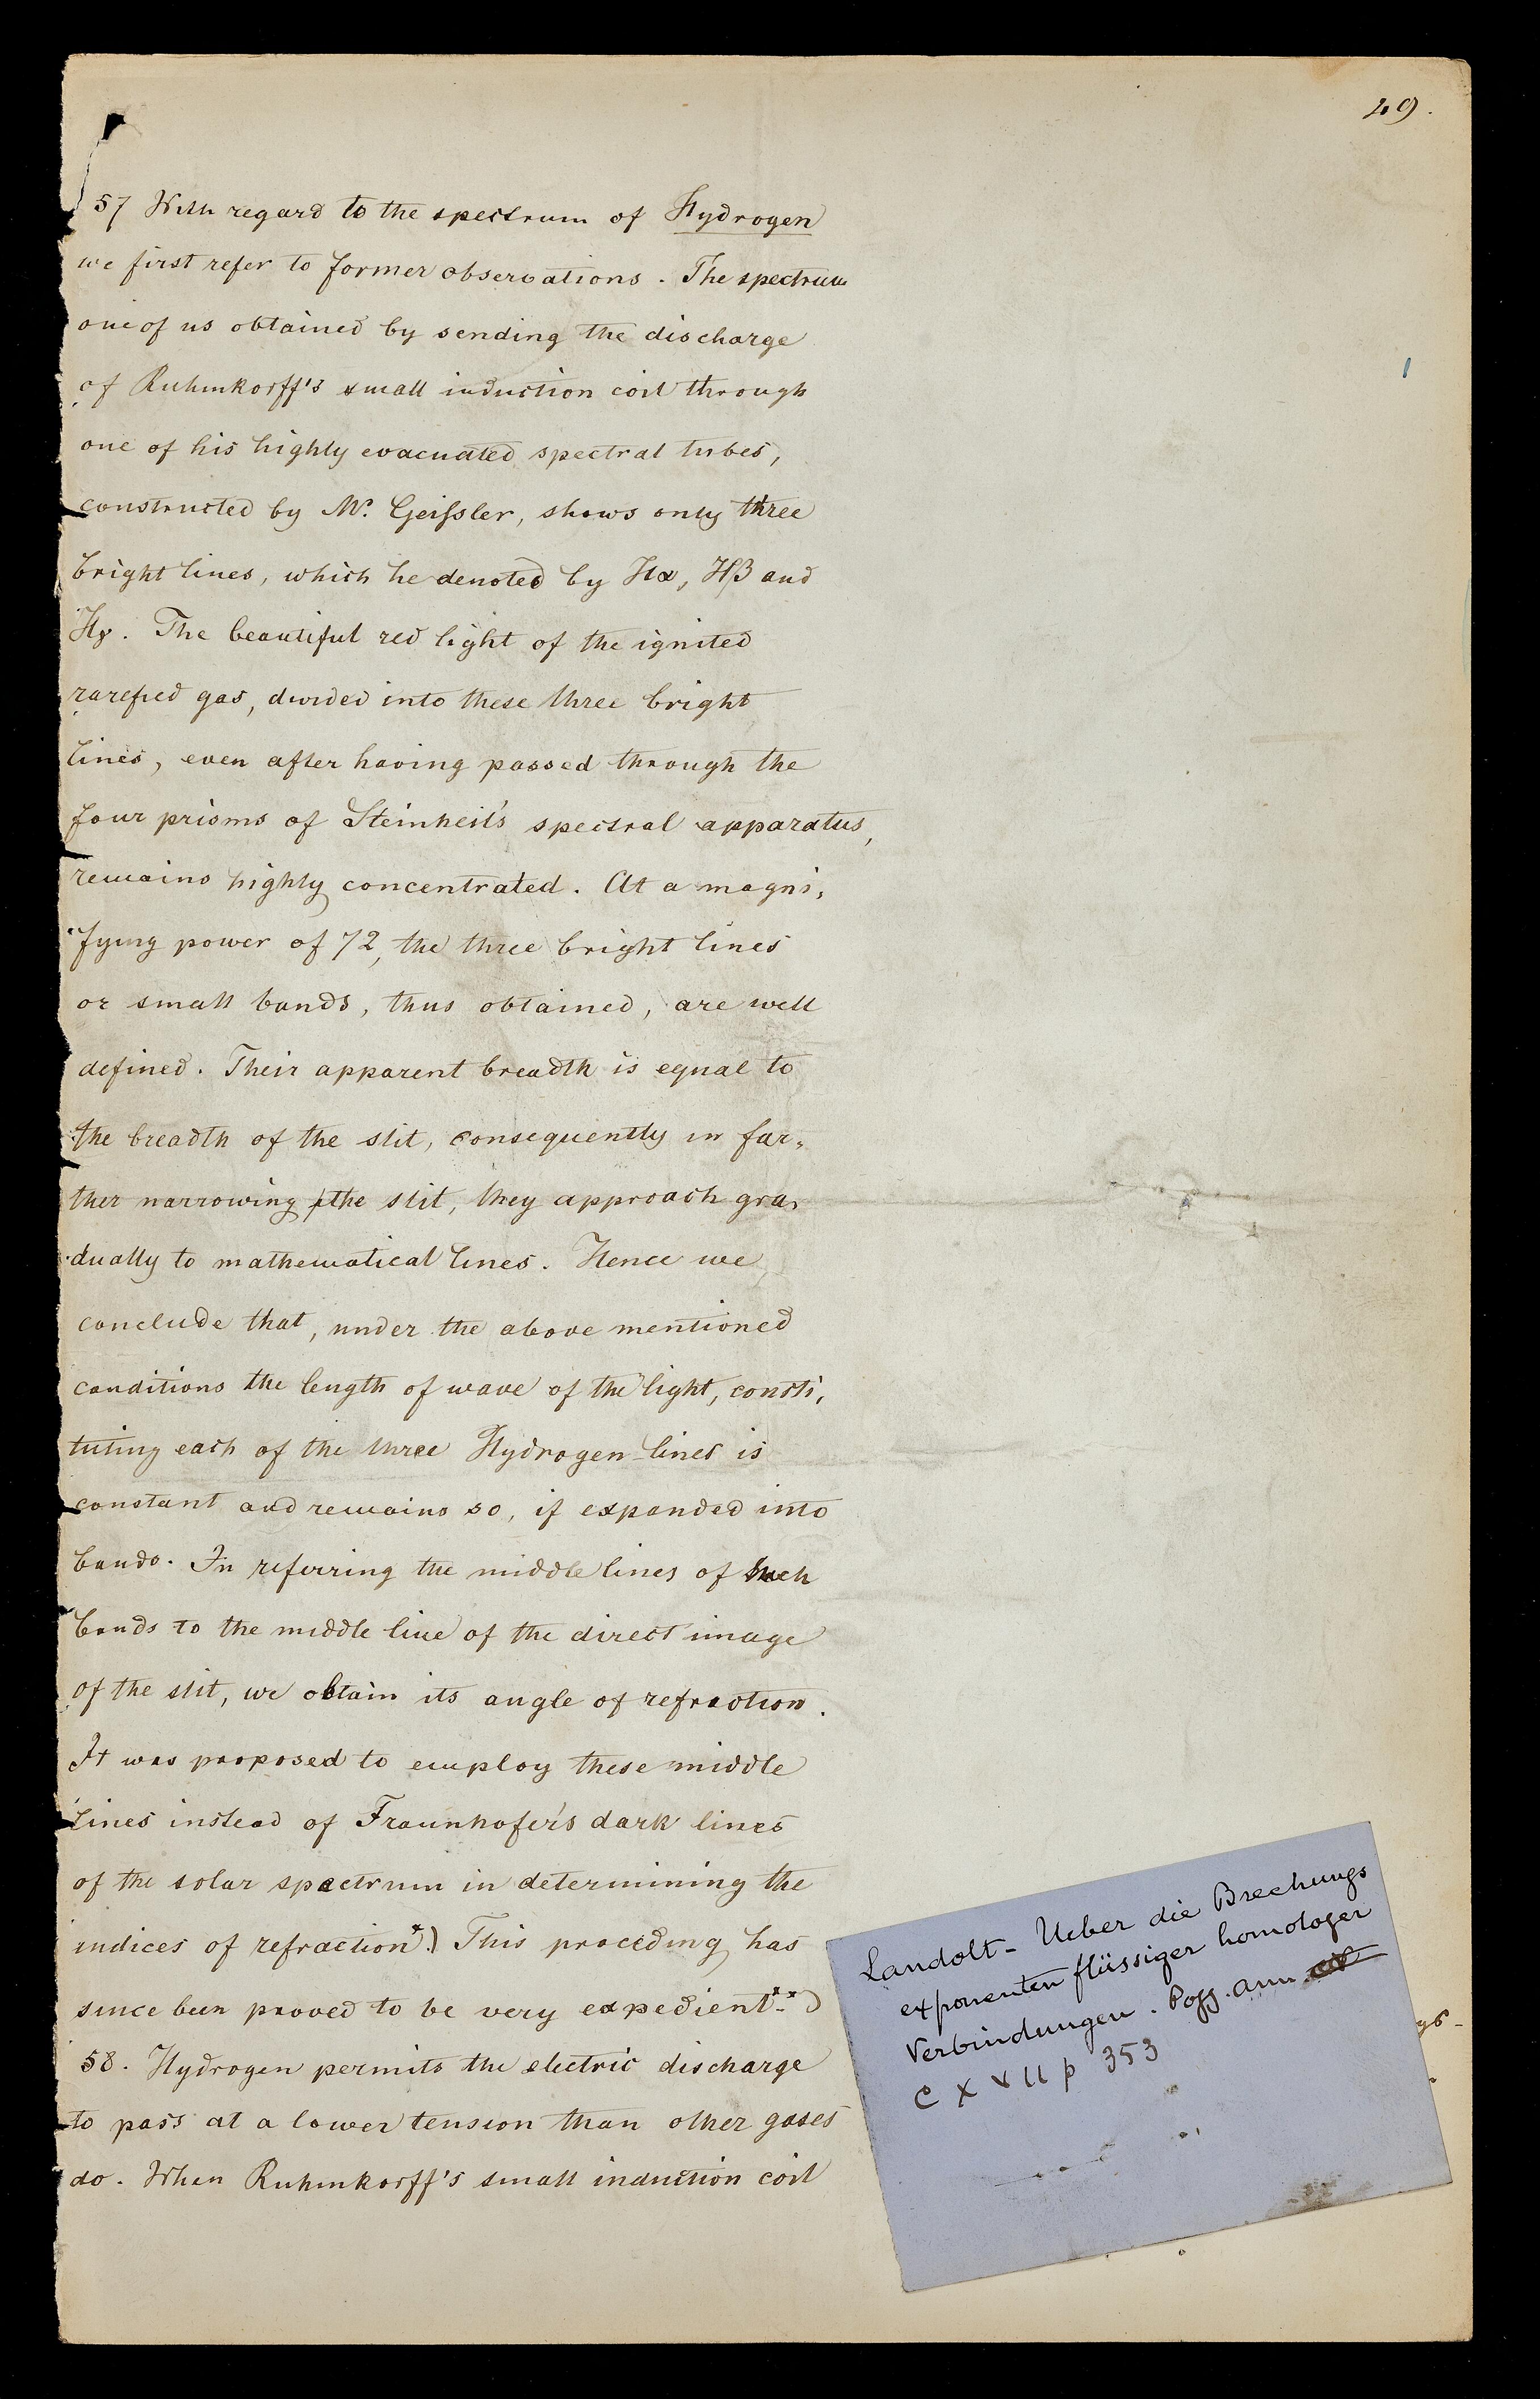 49.
57 With regard to the spectrum of Hydrogen
we first refer to former observations. The spectrum
one of us obtained by sending the discharge
of Ruhmkorff's small induction coil through
one of his highly evacuated spectral tubes,
constructed by Mr. Geiſsler, shows only three
bright lines, which he denoted by Hα, Hβ and
Hγ. The beautiful red light of the ignited
rarefied gas, divided into these three bright
lines, even after having passed through the
four prisms of Steinheil's spectral apparatus,
remains highly concentrated. At a magni-
fying power of 72, the three bright lines
or small bands, thus obtained, are well
defined. Their apparent breadth is equal to
the breadth of the slit, consequently in far-
ther narrowing the slit, they approach gra-
dually to mathematical lines. Hence we
conclude that, under the above mentioned
conditions the length of wave of the light, consti-
tuting each of the three Hydrogen-lines is
constant and remains so, if expanded into
bands. In referring the middle lines of such
bands to the middle line of the direct image
of the slit, we obtain its angle of refraction.
It was proposed to employ these middle
lines instead of Fraunhofer's dark lines
of the solar spectrum in determining the
indices of refraction*.) This proceding has
since been proved to be very expedient.**)
58. Hydrogen permits the electric discharge
to pass at a lower tension than other gases
do. When Ruhmkorff's small induction coil
Landolt - Ueber die Brechungs
exponenten flüssiger homologer
Verbindungen. Pogg. Ann
CXVII p 353